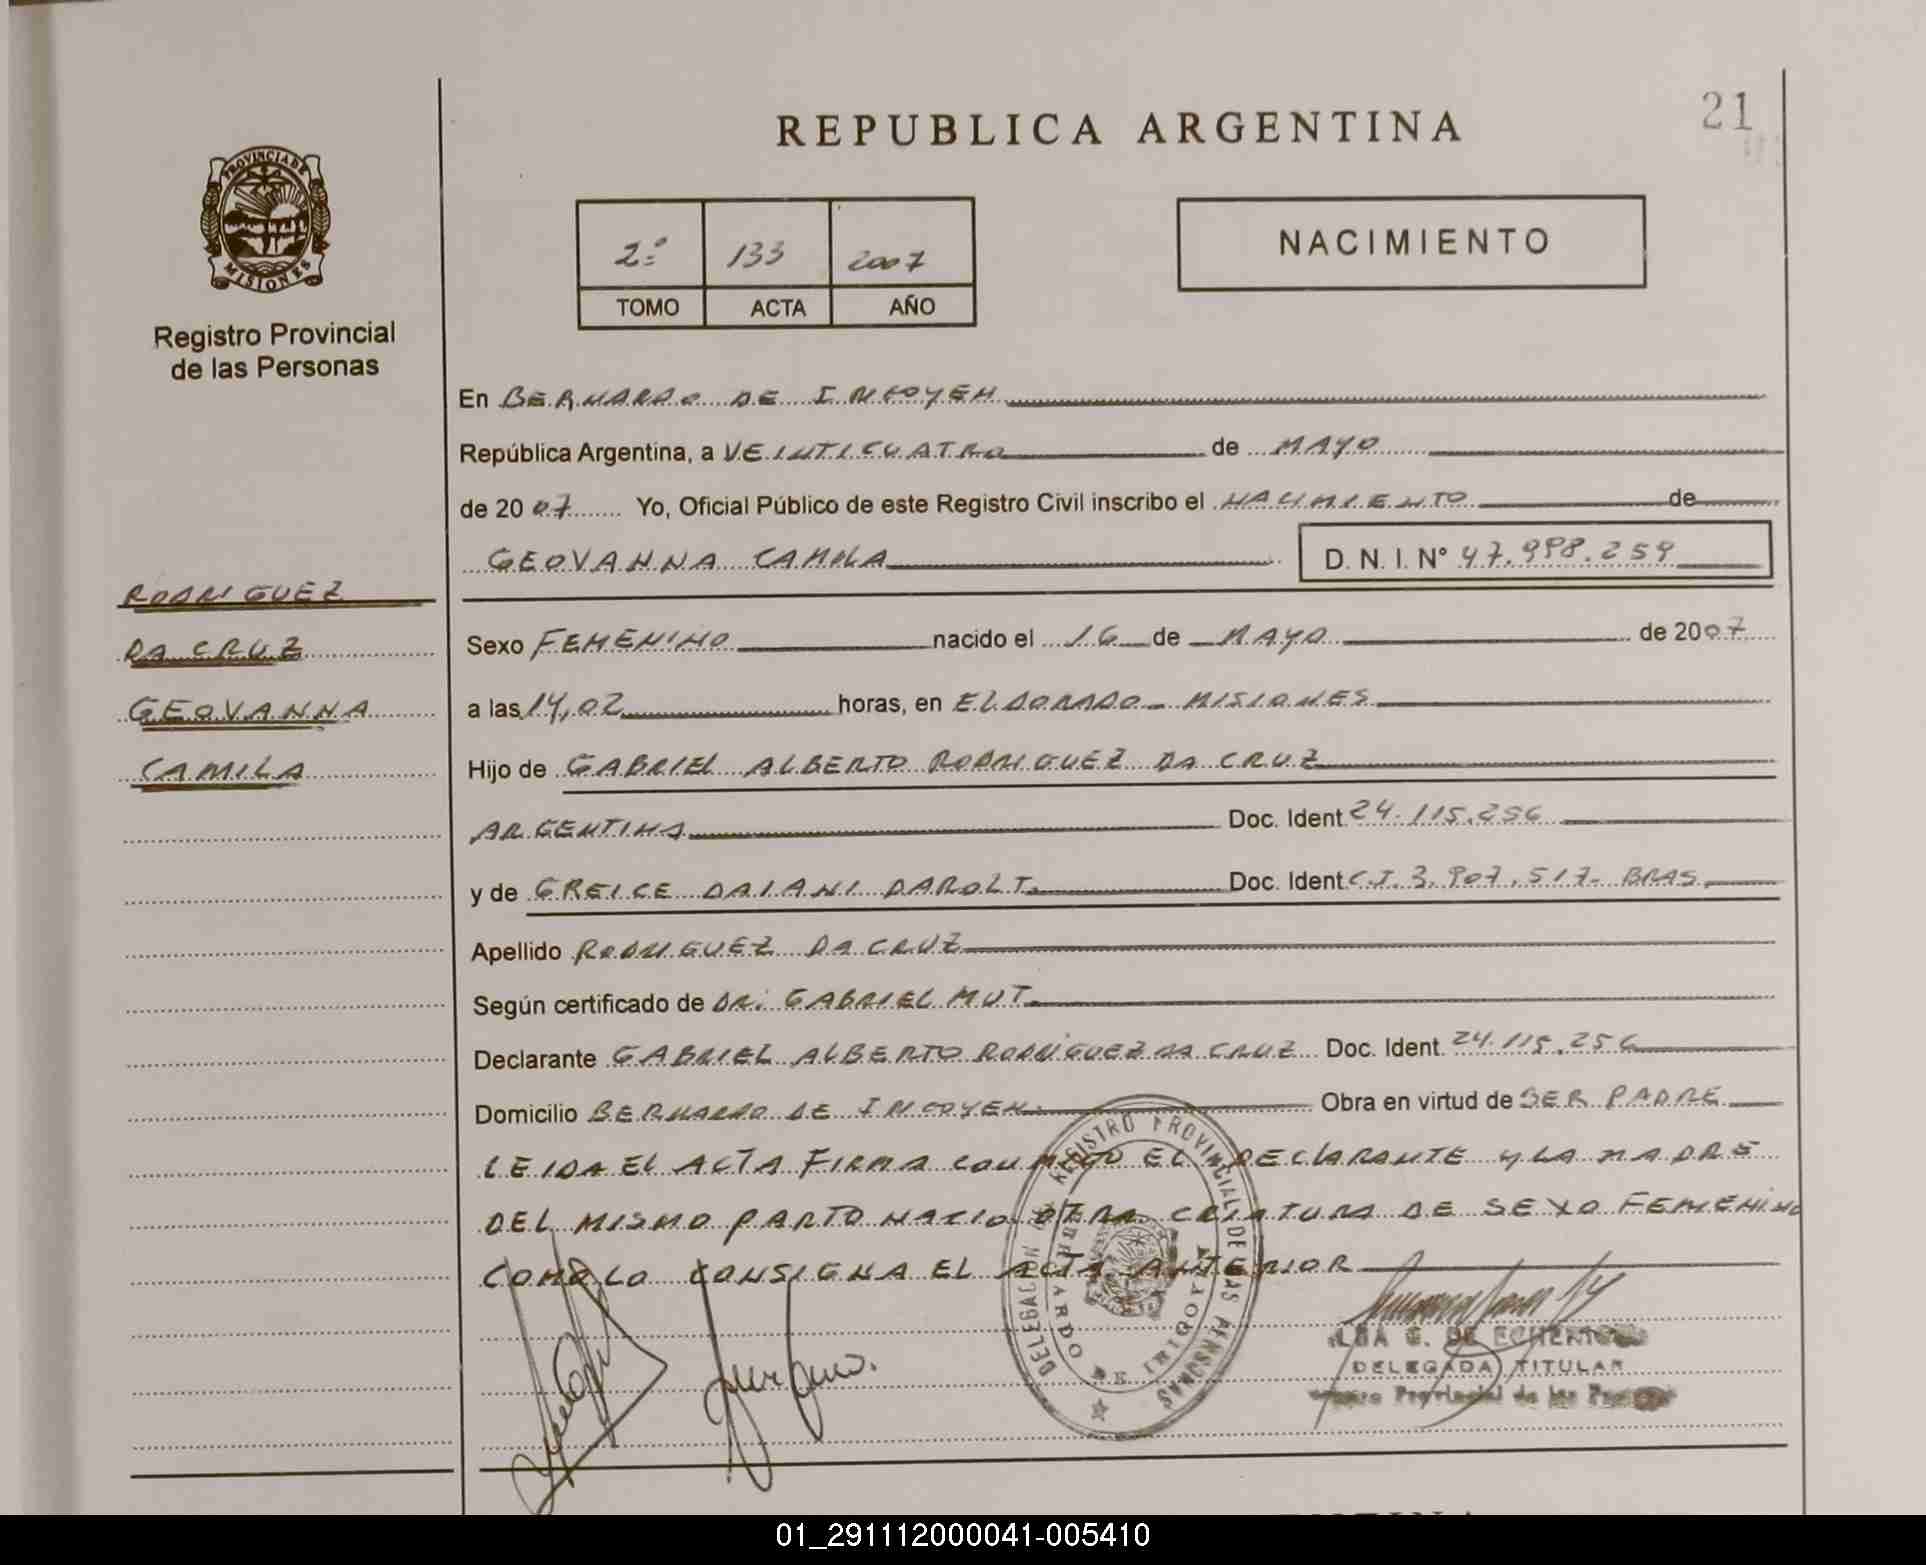 21
REPUBLICA ARGENTINA
PROVINCIA DE
MISIONES
Registro Provincial
de las Personas
2º 133 2007
TOMO ACTA AÑO
NACIMIENTO
En BERNARDO DE IRIGOYEN
República Argentina, a VEINTICUATRO de MAYO
de 2007 Yo, Oficial Público de este Registro Civil inscribo el NACIMIENTO de
GEOVANNA CAMILA D. N. I. N° 47.998.259
RODRIGUEZ
DA CRUZ
GEOVANNA
CAMILA
Sexo FEMENINO nacido el 16 de MAYO de 2007
a las 14,02 horas, en ELDORADO - MISIONES
Hijo de GABRIEL ALBERTO RODRIGUEZ DA CRUZ
ARGENTINA Doc. Ident 24.115.256
y de GREICE DAIANI DAROLT Doc. Ident C.I. 3.907.517- BRAS.
Apellido RODRIGUEZ DA CRUZ
Según certificado de DR. GABRIEL MUT
Declarante GABRIEL ALBERTO RODRIGUEZ DA CRUZ Doc. Ident. 24.115.256
Domicilio BERNARDO DE IRIGOYEN Obra en virtud de SER PADRE
LEIDA EL ACTA FIRMA CONMIGO EL DECLARANTE Y LA MADRE
DEL MISMO PARTO NACIO OTRA CRIATURA DE SEXO FEMENINO
COMO LO CONSIGNA EL ACTA ANTERIOR
REGISTRO PROVINCIAL DE LAS PERSONAS
DELEGACION
DE IRIGOYEN
G. DE
DELEGADA TITULAR
Provincial de las
01_291112000041-005410